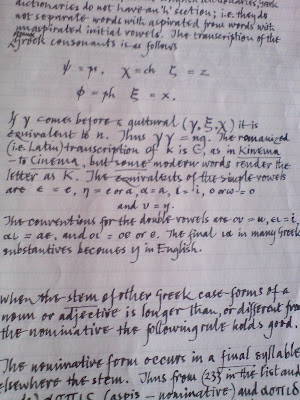 dictionaries do not have an 'h' section; i.e. they do
not separate words with aspirated from words with
unaspirated initial vowels. The transcription of the
Greek consonants is as follows
ψ = ps, χ = ch ζ = z
φ = ph ξ = x.
If γ comes before a guttural (γ, ξ, χ) it is
equivalent to n. Thus γγ = ng. The romanized
(i.e. Latin) transcription of k is C, as in Kinema
– to Cinema, but some modern words render the
letter as K. The equivalents of the simple vowels
are ε = e, η = e or a, α = a, ι = i, ο or ω = o
and υ = y.
The conventions for the double vowels are ου = u, ει = i,
αι = ae, and οι = oe or e. The final ια in many Greek
substantives becomes y in English.
When the stem of other Greek case-forms of a
noun or adjective is longer than, or different from
the nominative the following rule holds good.
The nominative form occurs in a final syllable
elsewhere the stem. Thus from (23) in the list and
(aspis – nominative) and ασπιδ